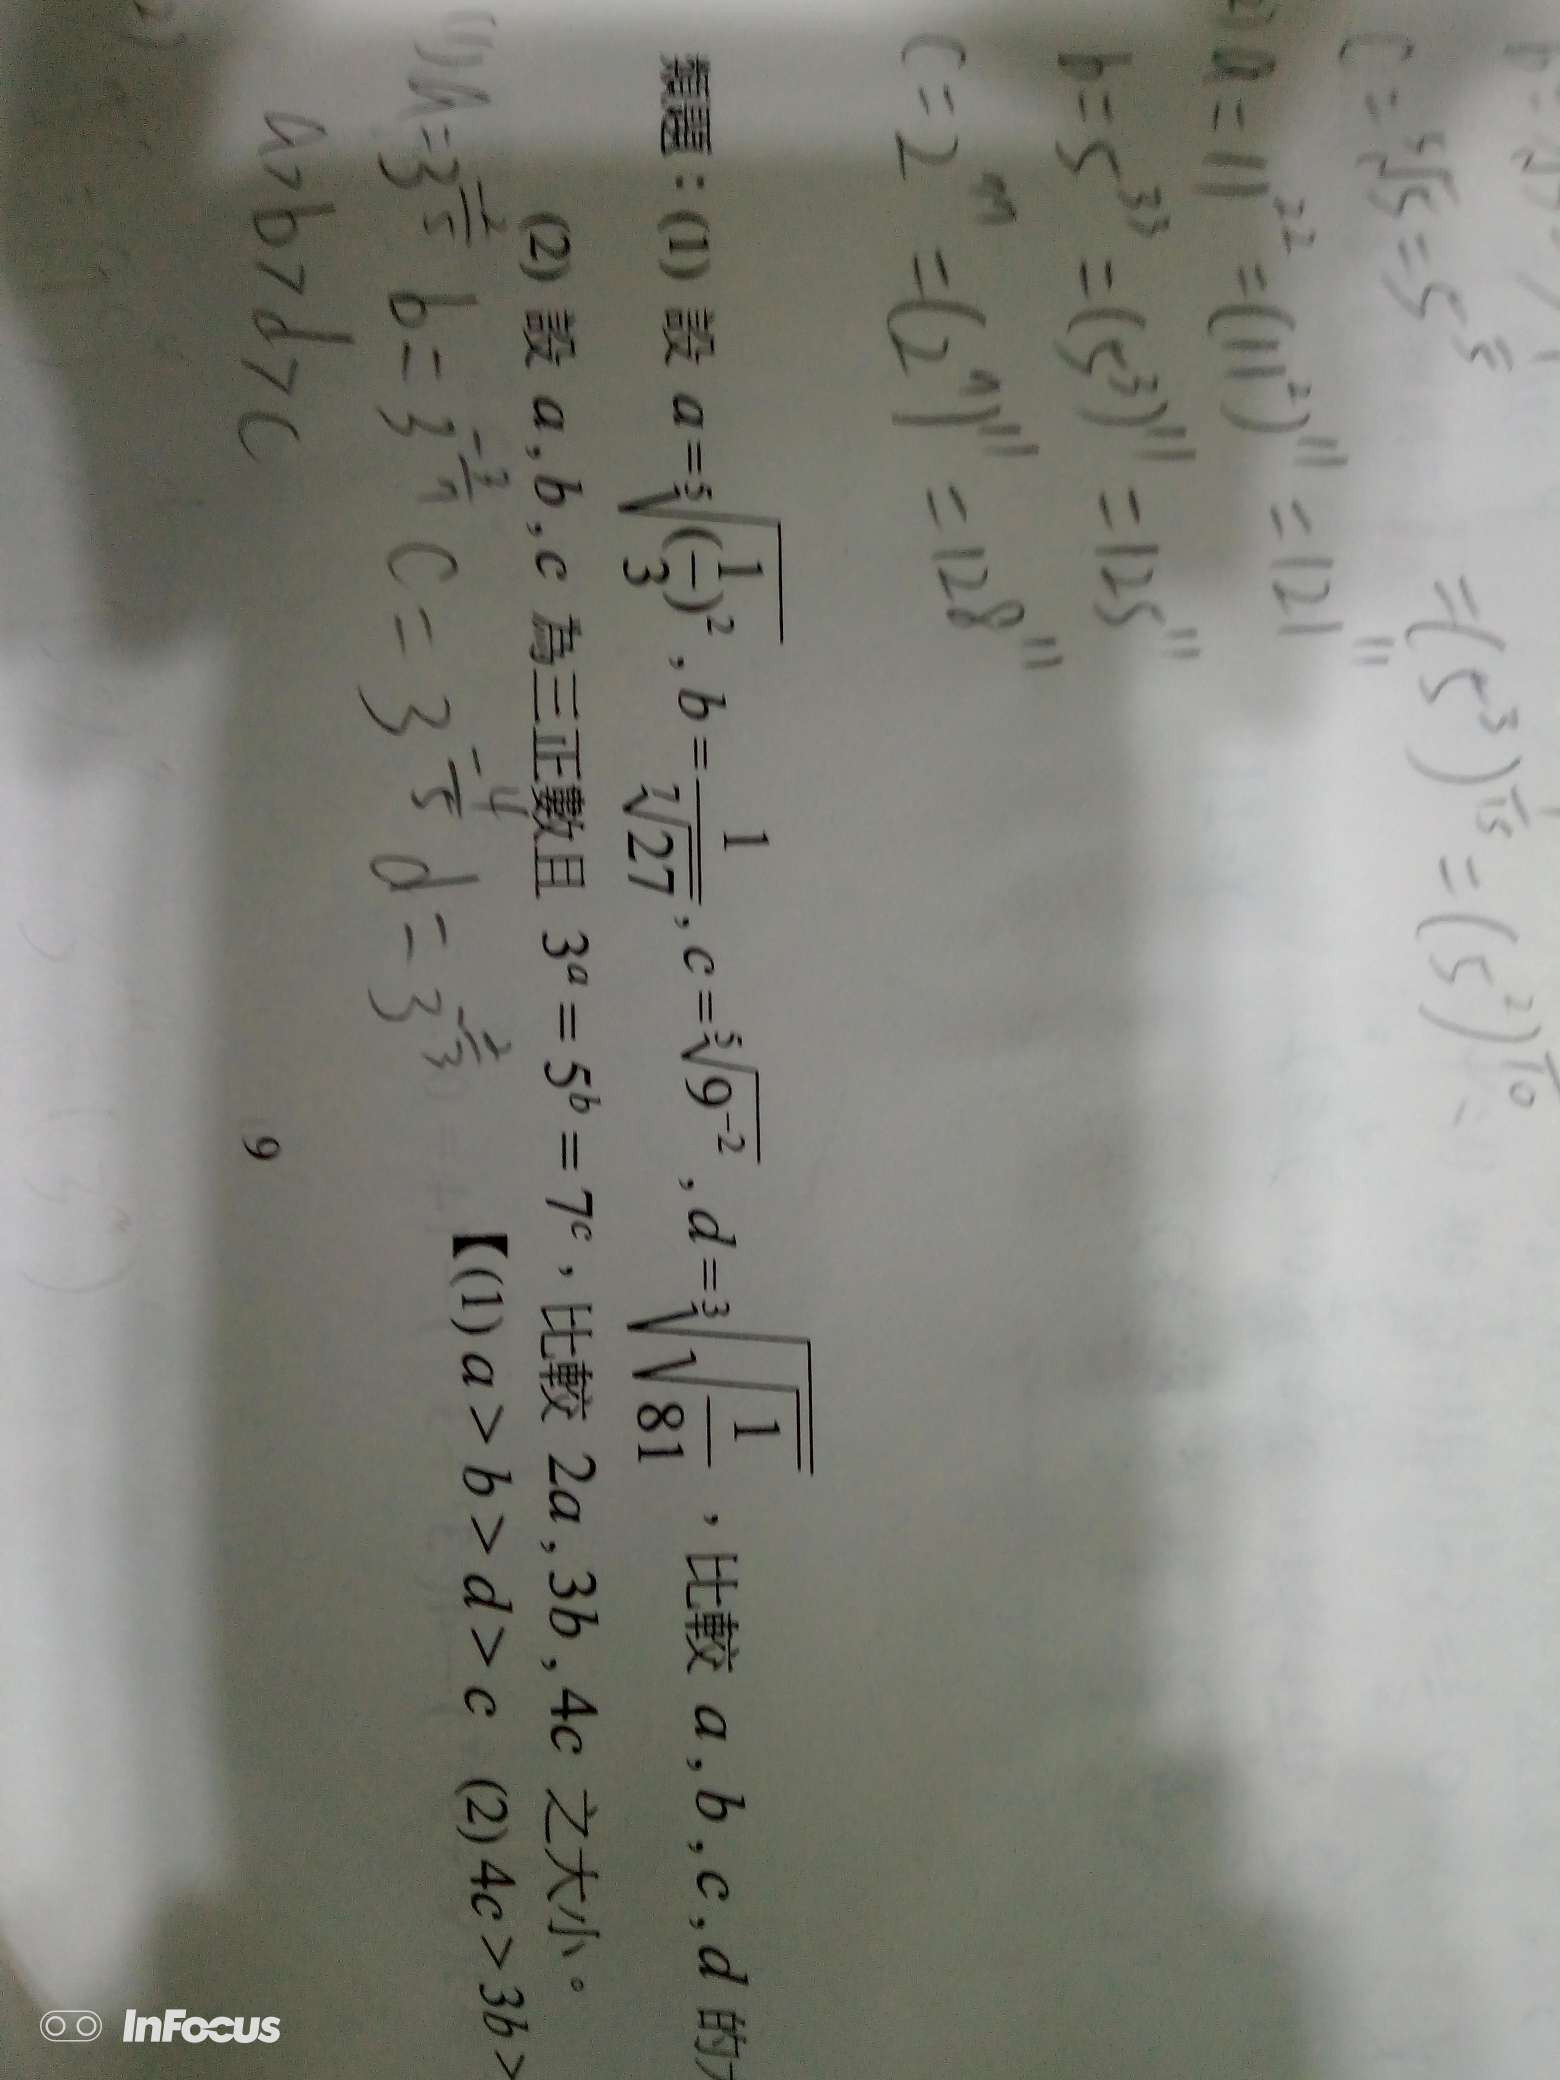 C = ⁵√5 = 5^(1/5) = (5³)^(1/15) = (5²)^(1/10)
a = 11²² = (11²)¹¹ = 121¹¹
b = 5³³ = (5³)¹¹ = 125¹¹
C = 2⁷⁷ = (2⁷)¹¹ = 128¹¹
類題：(1) 設 a = ⁵√(1/3)² , b = 1/⁷√27 , c = ⁵√9⁻² , d = ³√√(1/81) ，比較 a , b , c , d 的
(2) 設 a , b , c 為三正數且 3ᵃ = 5ᵇ = 7ᶜ，比較 2a , 3b , 4c 之大小。
【(1) a > b > d > c (2) 4c > 3b >
(1) a = 3^(-2/5) b = 3^(-3/7) C = 3^(-4/5) d = 3^(-2/3)
a > b > d > c
9
InFocus